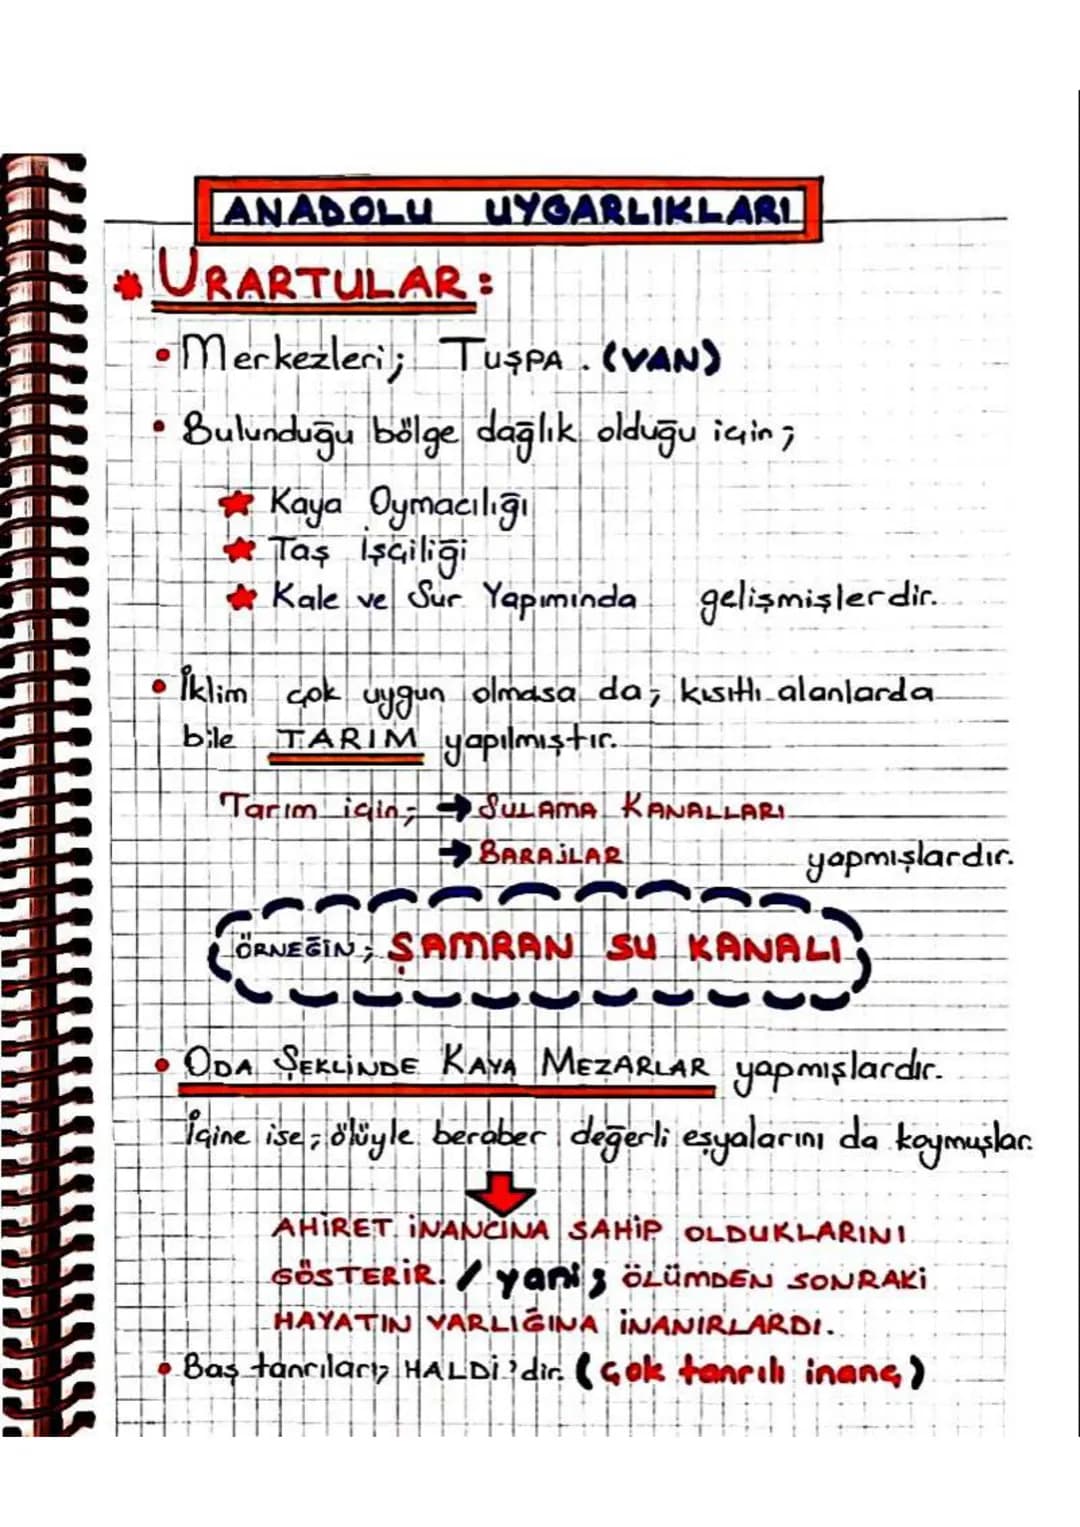 ANADOLU UYGARLIKLARI
* URARTULAR:
• Merkezleri; TUŞPA. (VAN)
• Bulunduğu bölge dağlık olduğu için;
★ Kaya Oymacılığı
★ Taş işçiliği
★ Kale ve Sur Yapımında gelişmişlerdir.
• İklim çok uygun olmasa da; kısıtlı alanlarda
bile TARIM yapılmıştır.
Tarım için; → SULAMA KANALLARI
→ BARAJLAR yapmışlardır.
ÖRNEĞİN; ŞAMRAN SU KANALI
• ODA ŞEKLİNDE KAYA MEZARLAR yapmışlardır.
İçine ise; ölüyle beraber değerli eşyalarını da koymuşlar.
AHİRET İNANCINA SAHİP OLDUKLARINI
GÖSTERİR. / yani; ÖLÜMDEN SONRAKİ
HAYATIN VARLIĞINA İNANIRLARDI.
• Baş tanrıları; HALDİ'dir. (çok tanrılı inanç)